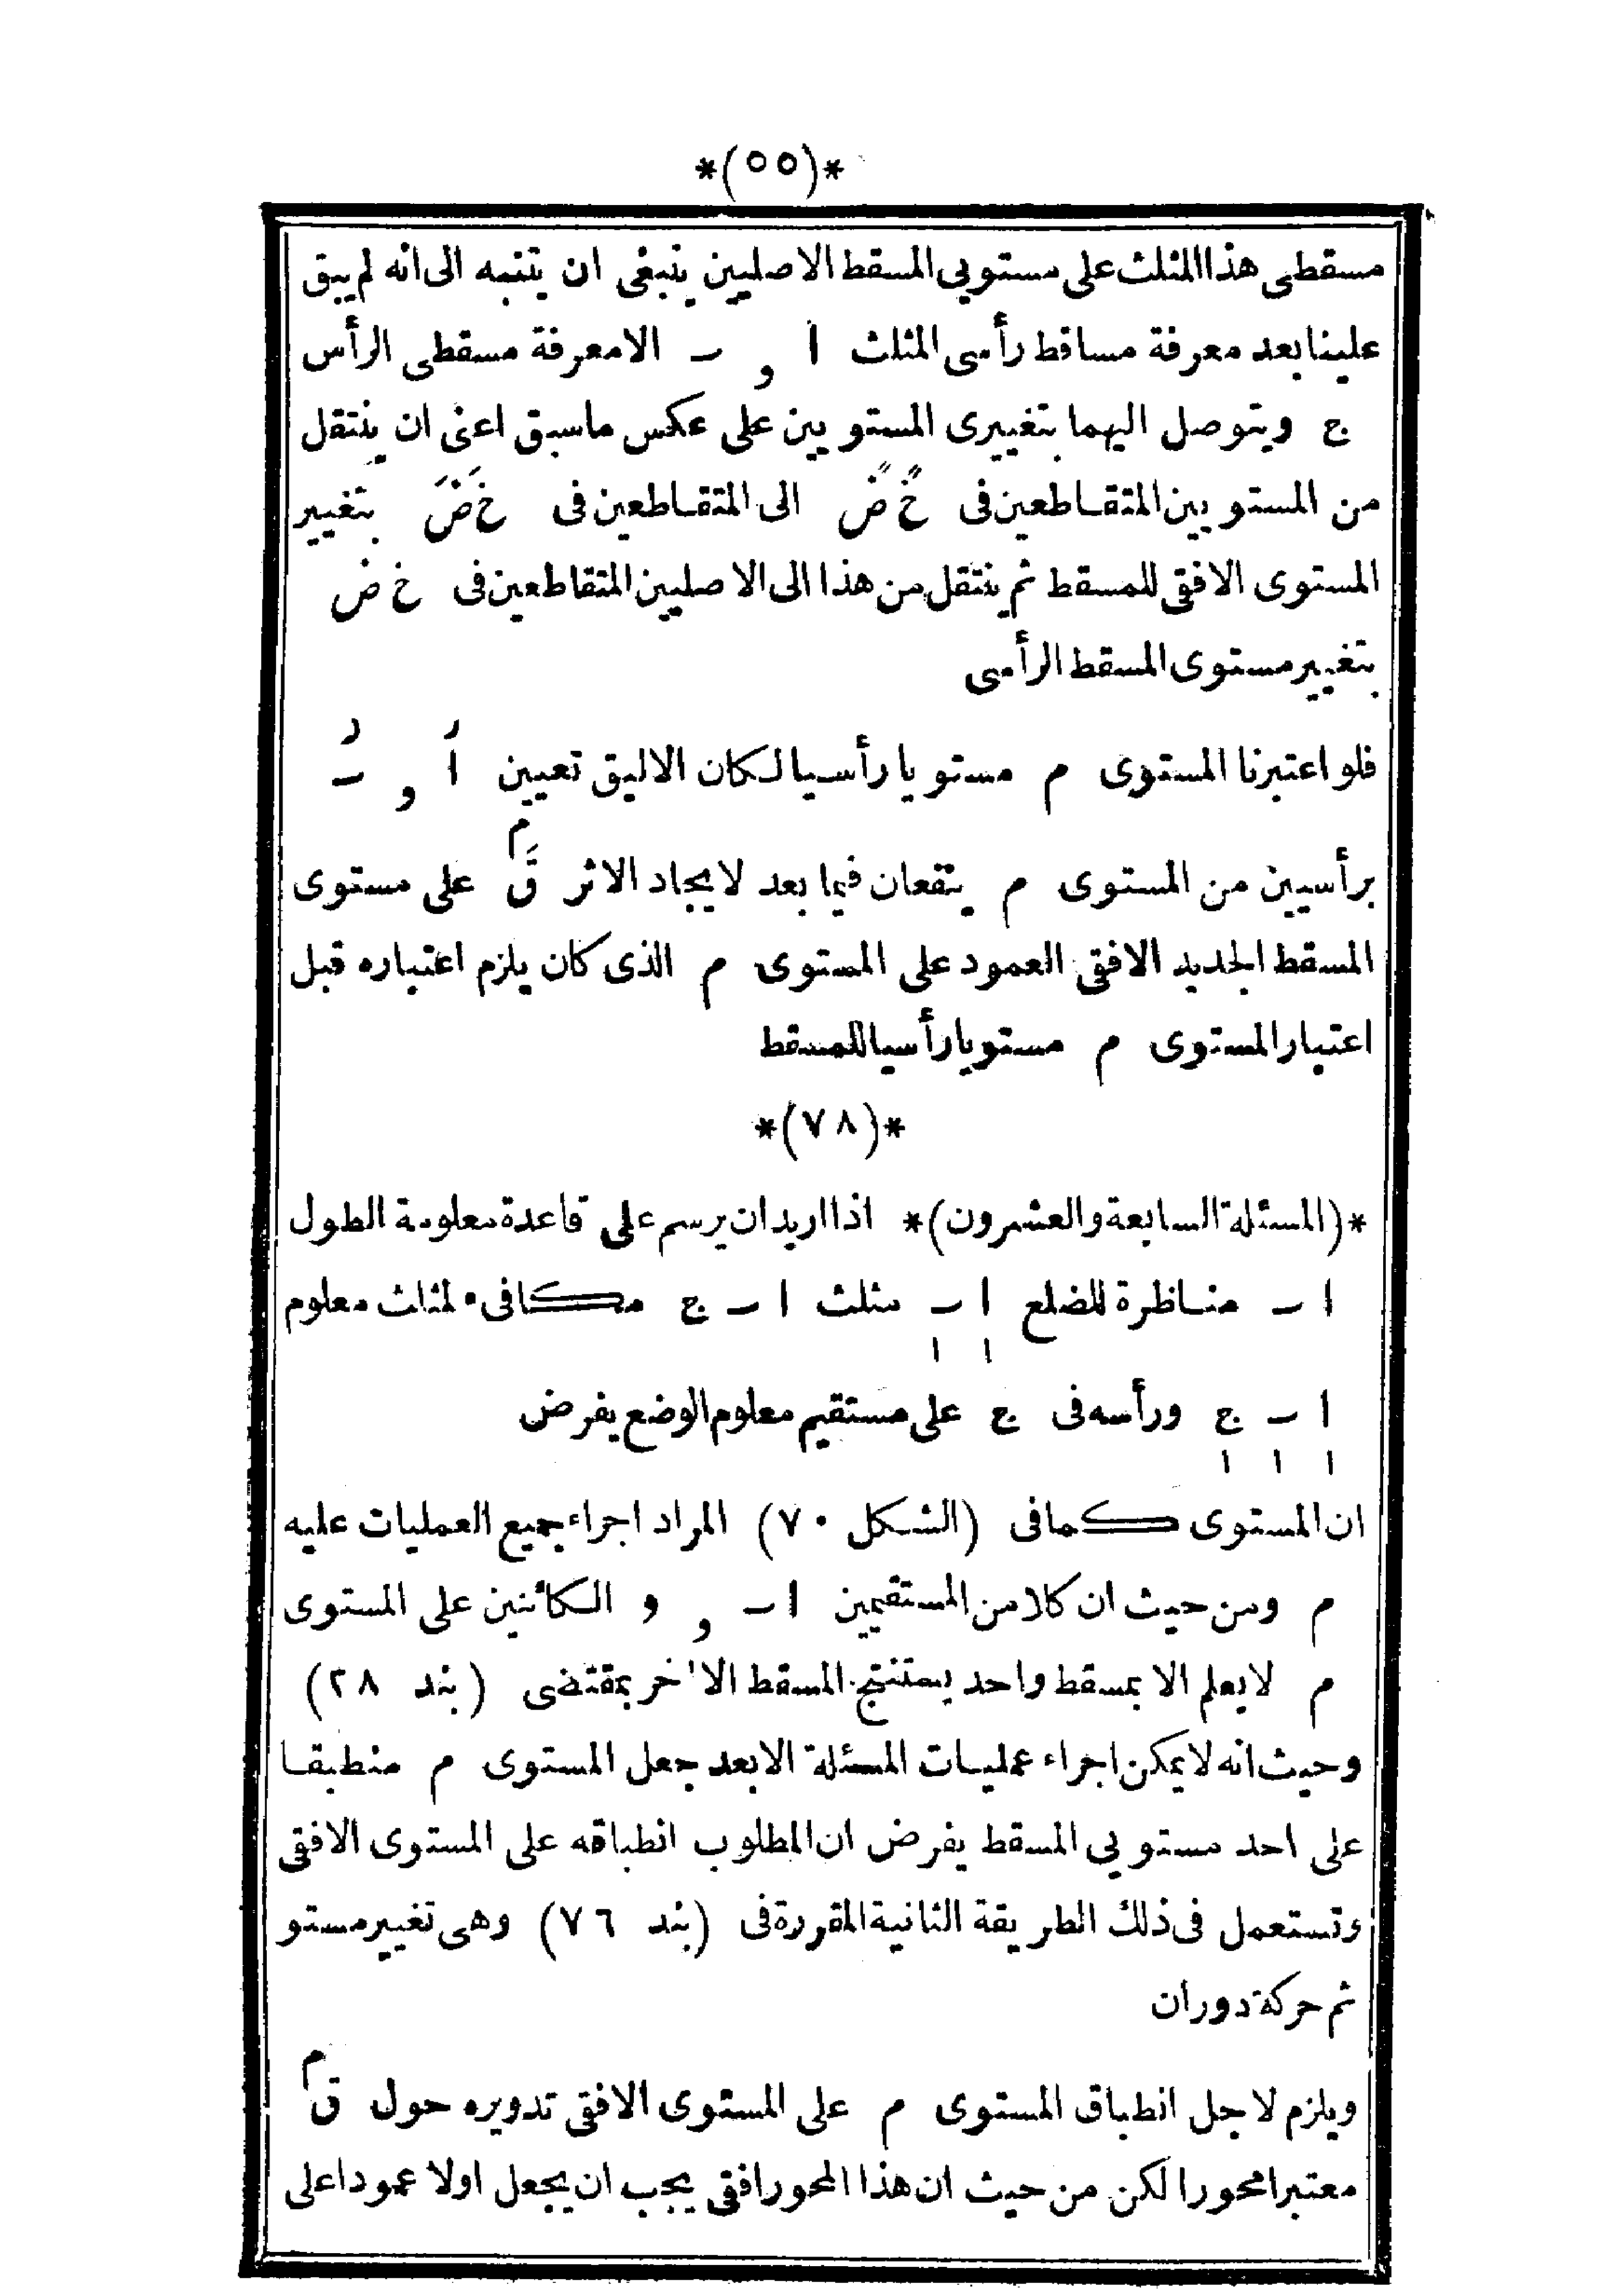 *(٥٥)*
مسقطى هذا المثلث على مستويى المسقط الاصليين ينبغى ان يتنبه الى انه لم يبق
علينا بعد معرفة مساقط رأسى المثلث ا و ب الا معرفة مسقطى الرأس
ج ويتوصل اليهما بتغييرى المستويين على عكس ماسبق اعنى ان ينتقل
من المستويين المتقاطعين فى خً ضً الى المتقاطعين فى خَ ضَ بتغيير
المستوى الافقى للمسقط ثم ينتقل من هذا الى الاصليين المتقاطعين فى خ ض
بتغيير مستوى المسقط الرأسى
فلو اعتبرنا المستوى م مستويا رأسيا لكان الاليق تعيين اَر و بَر
برأسيين من المستوى م ينفعان فيما بعد لايجاد الاثر قَم على مستوى
المسقط الجديد الافقى العمود على المستوى م الذى كان يلزم اعتباره قبل
اعتبار المستوى م مستويا رأسيا للمسقط
*(٧٨)*
*(المسئلة السابعة والعشرون)* اذا اريد ان يرسم على قاعدة معلومة الطول
ا ب مناظرة للضلع ا ب مثلث ا ب ج مكافىء لمثلث معلوم
١ ١
ا ب ج ورأسه فى ج على مستقيم معلوم الوضع يفرض
١ ١ ١
ان المستوى كما فى (الشكل ٧٠) المراد اجراء جميع العمليات عليه
م ومن حيث ان كلا من المستقيمين ا ب و و الكائنين على المستوى
م لا يعلم الا بمسقط واحد يستنتج المسقط الآخر بمقتضى (بند ٢٨)
وحيث انه لا يمكن اجراء عمليات المسئلة الا بعد جعل المستوى م منطبقا
على احد مستويى المسقط يفرض ان المطلوب انطباقه على المستوى الافقى
وتستعمل فى ذلك الطريقة الثانية المقررة فى (بند ٧٦) وهى تغيير مستو
ثم حركة دوران
ويلزم لاجل انطباق المستوى م على المستوى الافقى تدويره حول قم
معتبرا محورا لكن من حيث ان هذا المحور افقى يجب ان يجعل اولا عمودا على